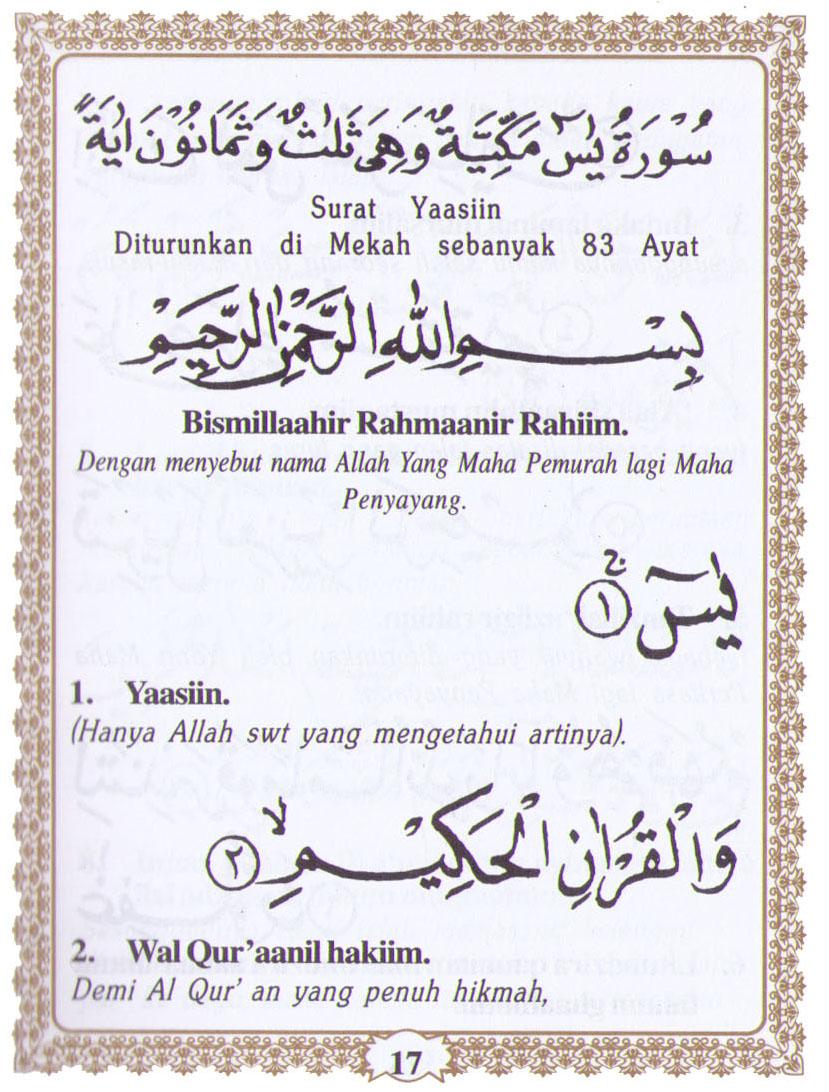 سُوْرَةُ يٰسٓ مَكِّيَّةٌ وَهِىَ ثَلَاثٌ وَثَمَانُوْنَ اٰيَةً
Surat Yaasiin
Diturunkan di Mekah sebanyak 83 Ayat
بِسْمِ اللّٰهِ الرَّحْمٰنِ الرَّحِيْمِ
Bismillaahir Rahmaanir Rahiim.
Dengan menyebut nama Allah Yang Maha Pemurah lagi Maha
Penyayang.
يٰسٓ ۚ ١
1. Yaasiin.
(Hanya Allah swt yang mengetahui artinya).
وَالْقُرْاٰنِ الْحَكِيْمِ ۙ ٢
2. Wal Qur’aanil hakiim.
Demi Al Qur’ an yang penuh hikmah,
17